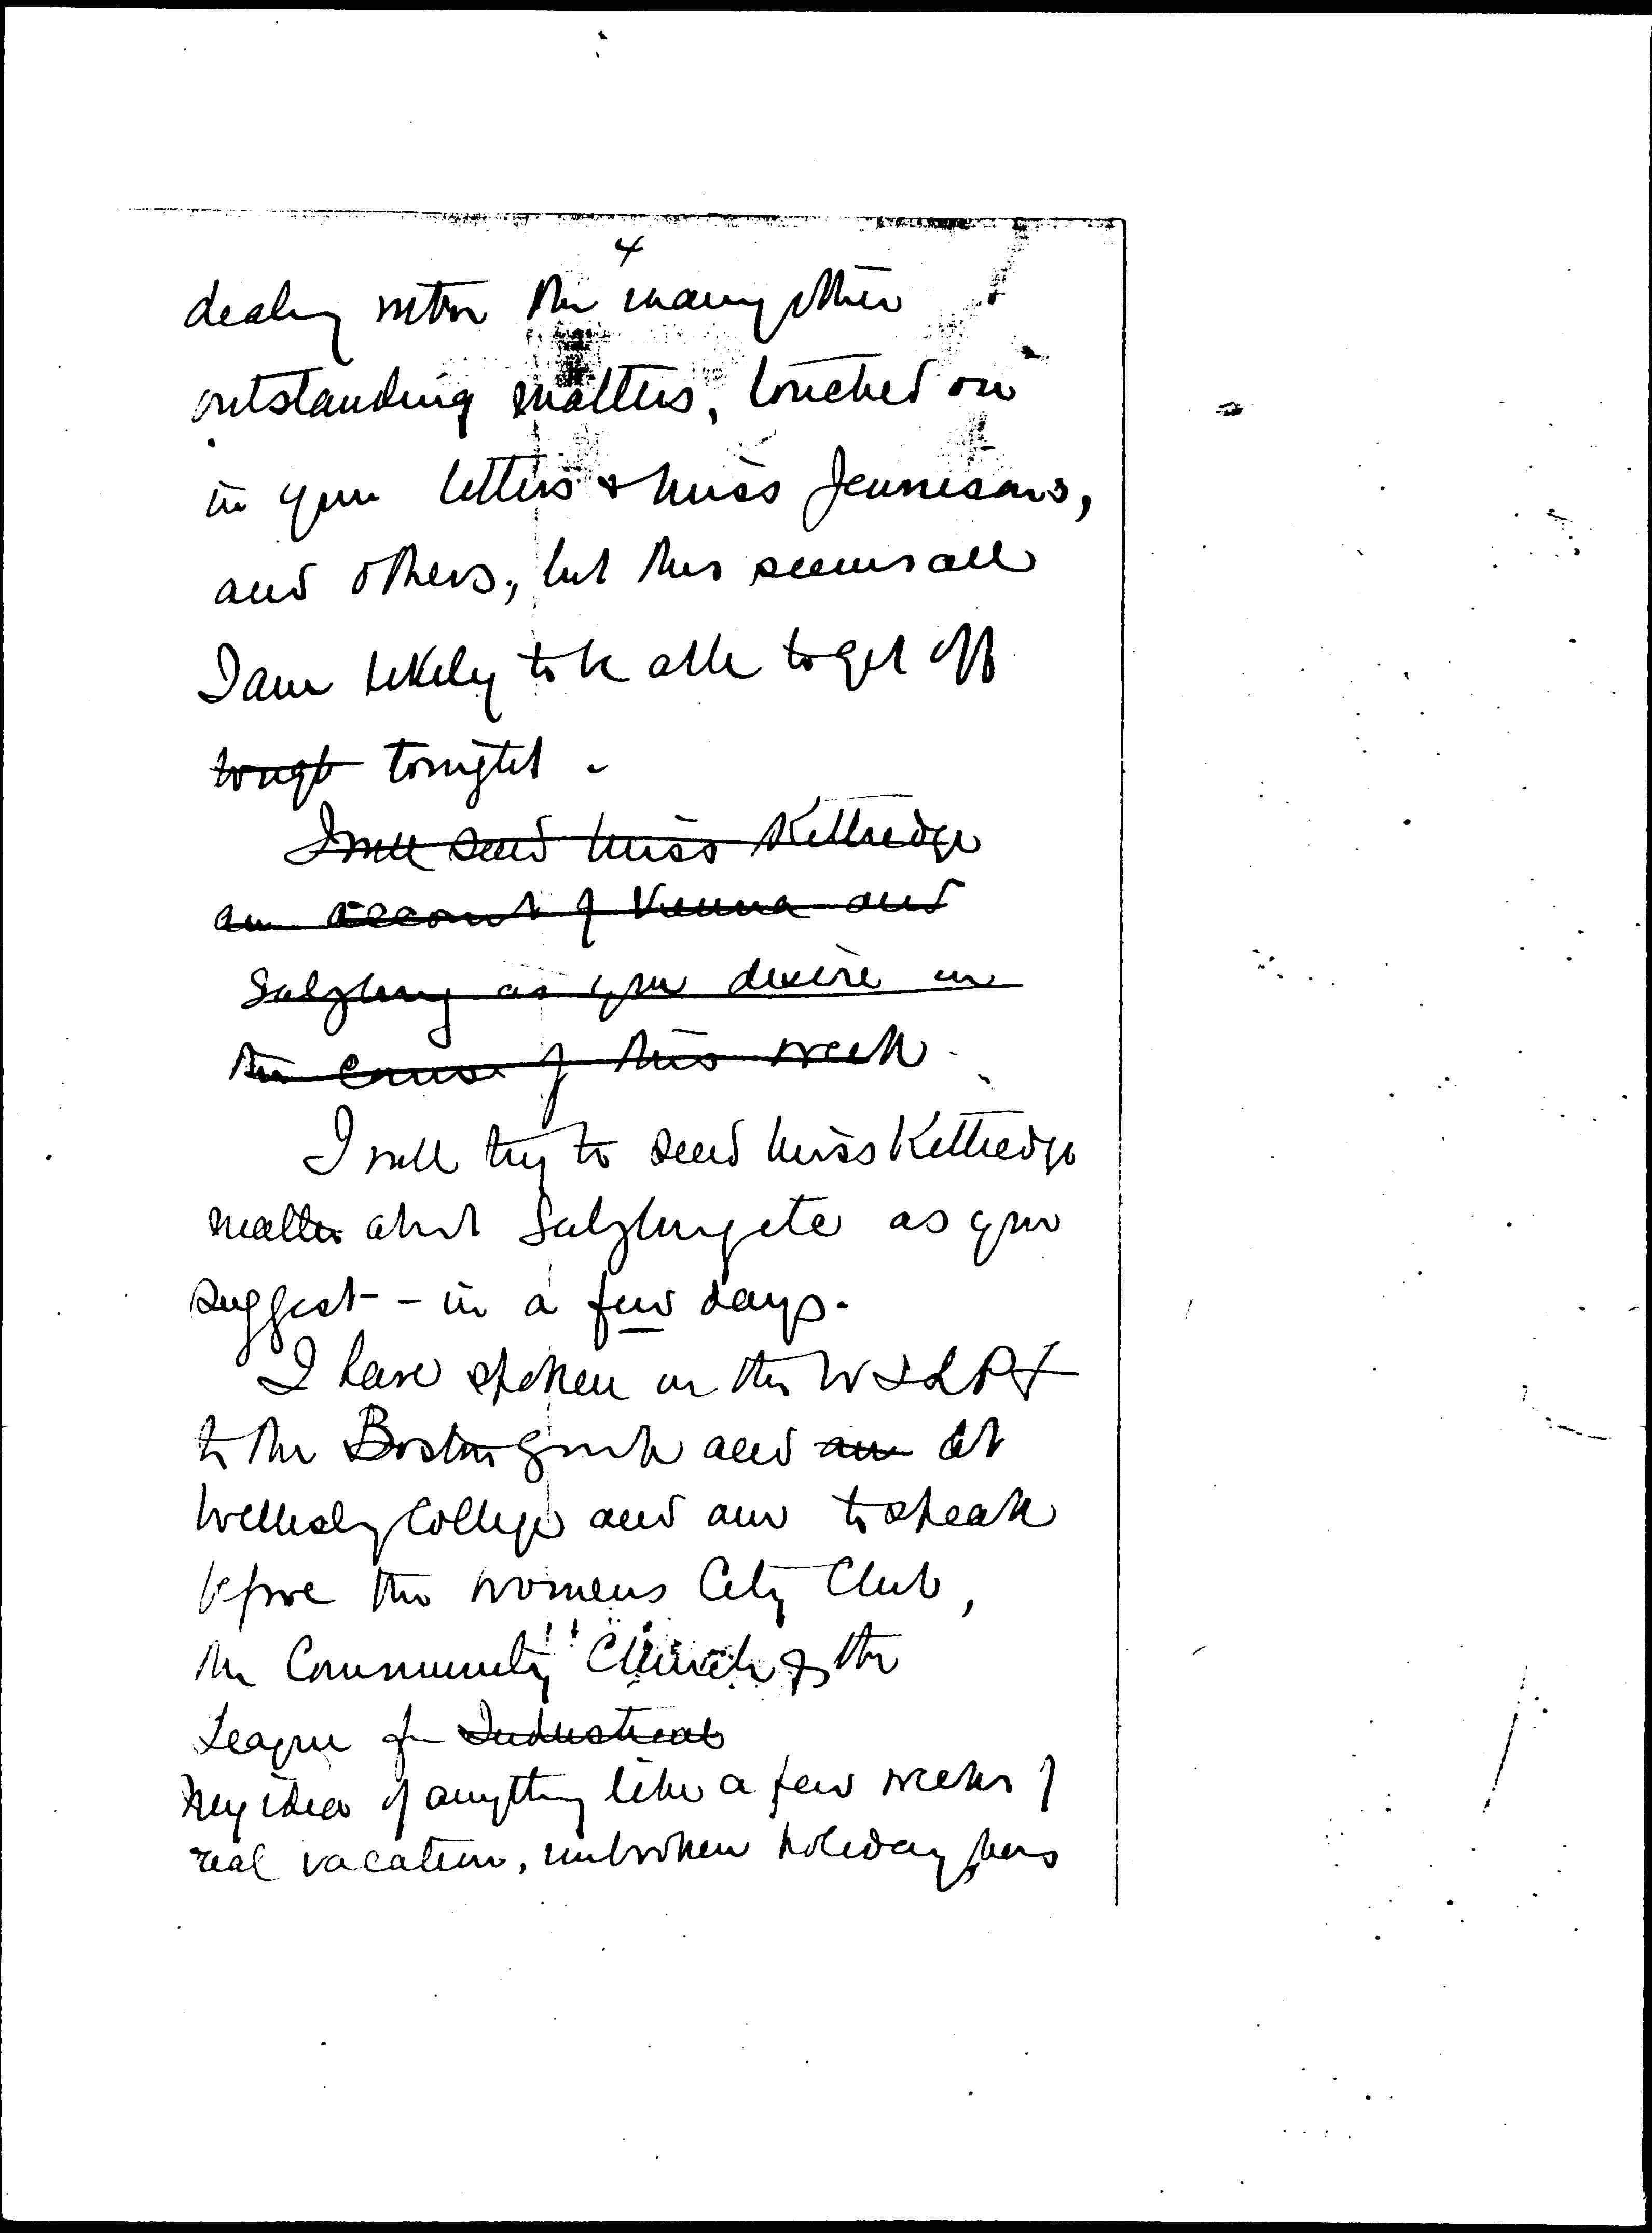 4
dealing with the many other
outstanding matters, touched on
in your letters & Miss Jennisons,
and others, but this seems all
I am likely to be able to get off
tonight tonight.
I will send Miss Kittredge
an account of Vienna and
Salzburg as you desire in
the course of this week.
I will try to send Miss Kittredge
matter about Salzburg etc as you
suggest - in a few days.
I have spoken on the WILPF
to the Boston group and am at
Wellesley College and am to speak
before the Womens City Club,
the Community Church & the
League for Industrial
My idea of anything like a few weeks of
real vacation, unbroken holiday, has